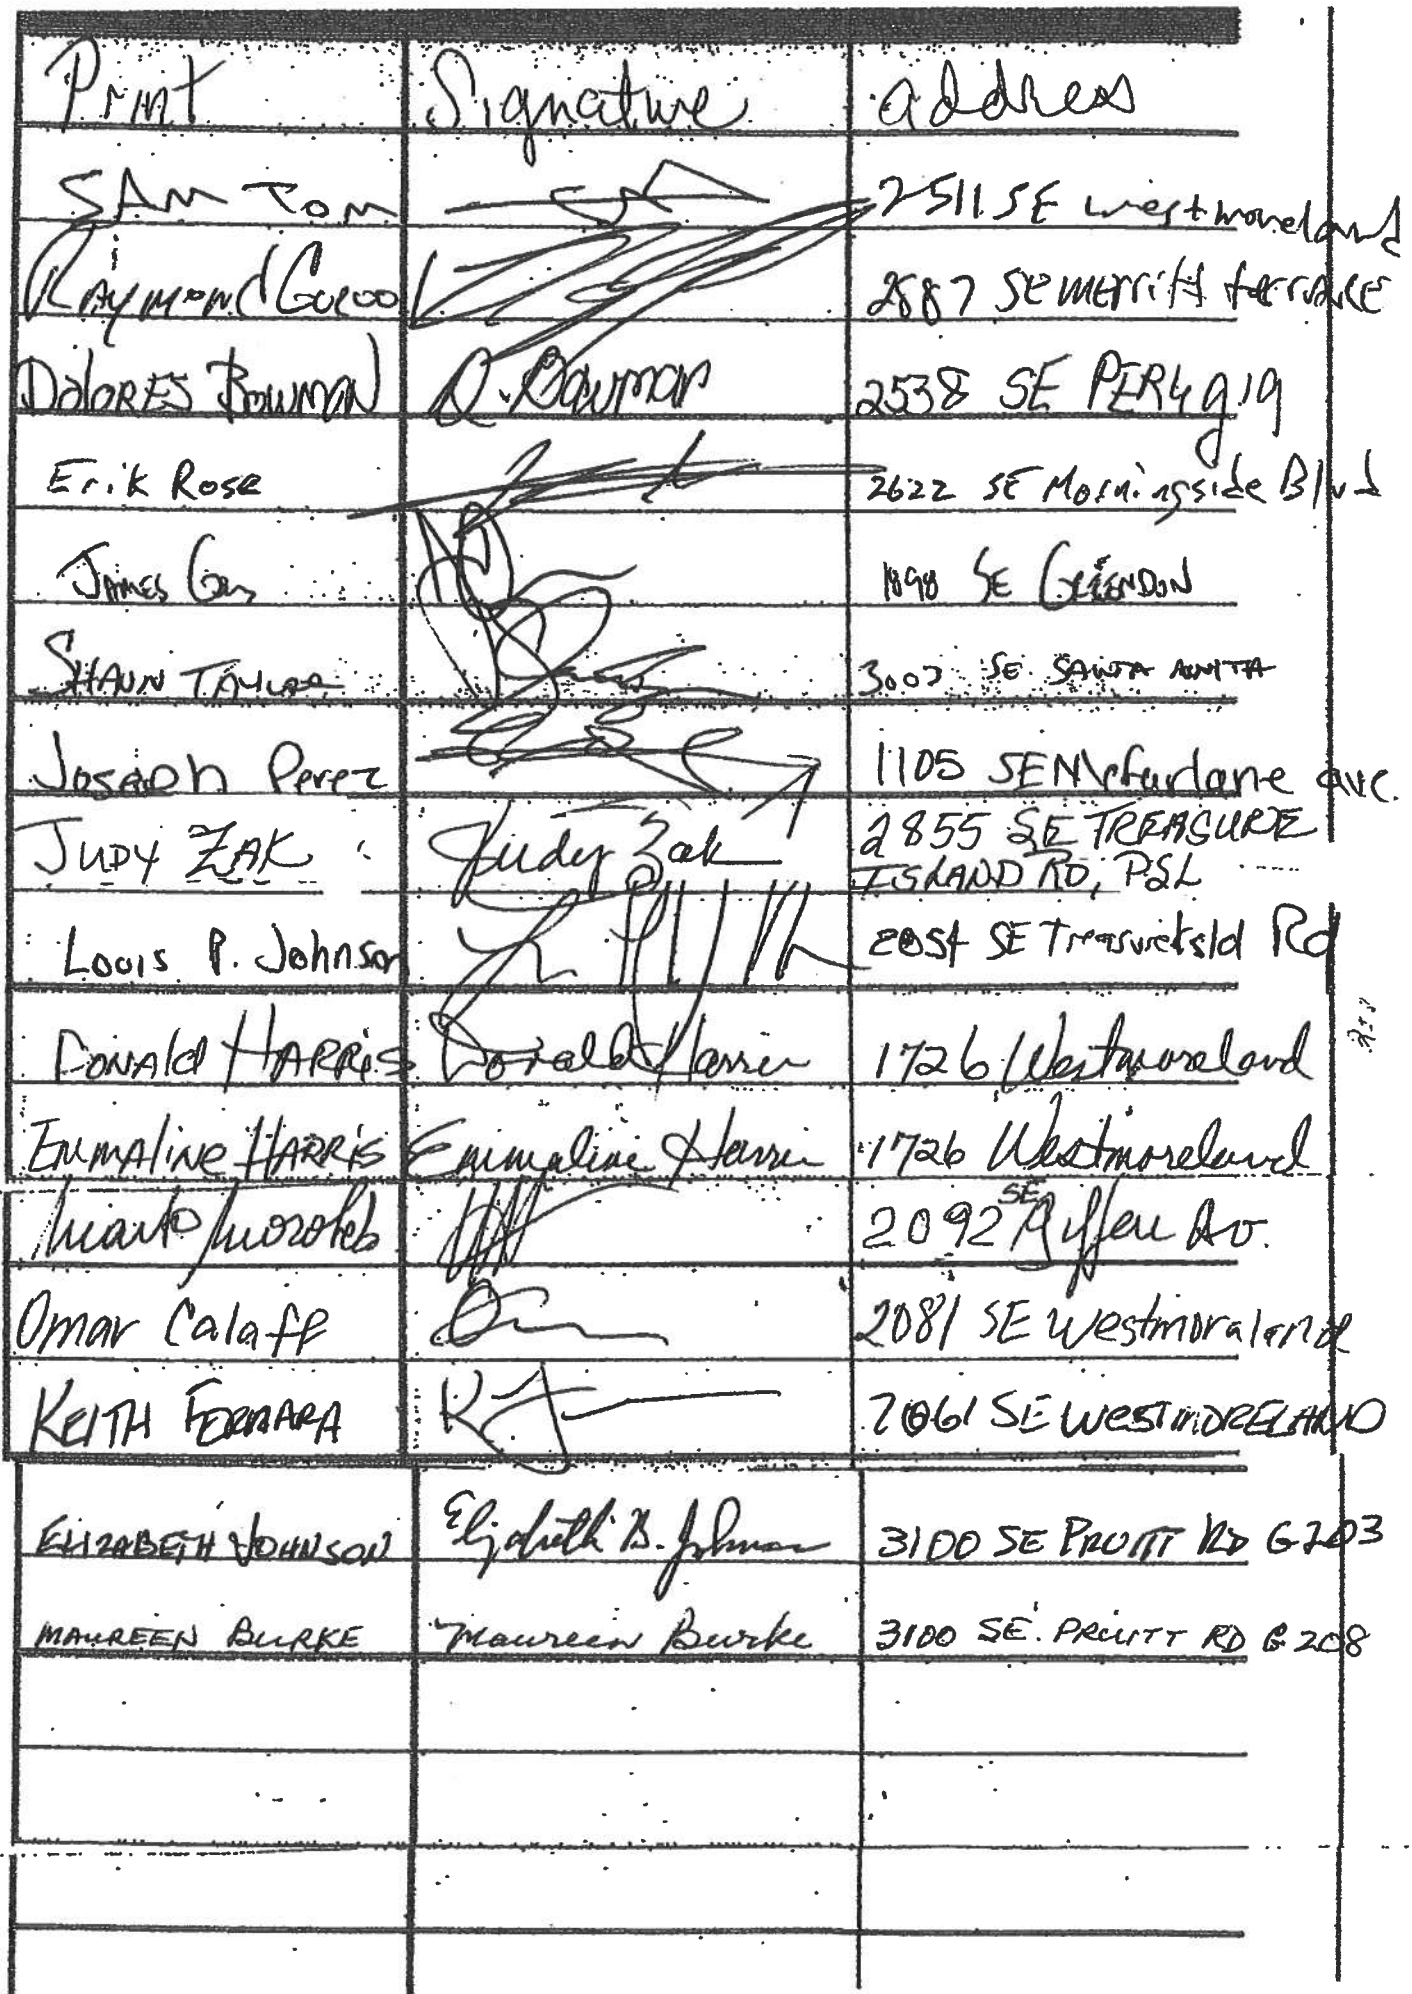 Print Signature address
SAM TOM 2511 SE westmoreland
Raymond 2887 SE merritt terrace
DOLORES BOWMAN D. Bowman 2538 SE
Erik Rose 2622 SE Morningside Blvd
JAMES 1898 SE
SHAUN TAYLOR 3002 SE SANTA ANITA
Joseph Perez 1105 SE Mcfarlane ave.
JUDY ZAK Judy Zak 2855 SE TREASURE
ISLAND RD, PSL
Louis P. Johnson SE Rd
DONALD HARRIS Donald Harris 1726 Westmoreland
EMMALINE HARRIS Emmaline Harris 1726 Westmoreland
2092 SE Av.
Omar Calaff 2081 SE Westmoraland
KEITH FORNARA KF 2061 SE WESTMORELAND
ELIZABETH JOHNSON Elizabeth B. Johnson 3100 SE PRUITT RD G203
MAUREEN BURKE Maureen Burke 3100 SE. PRUITT RD G208